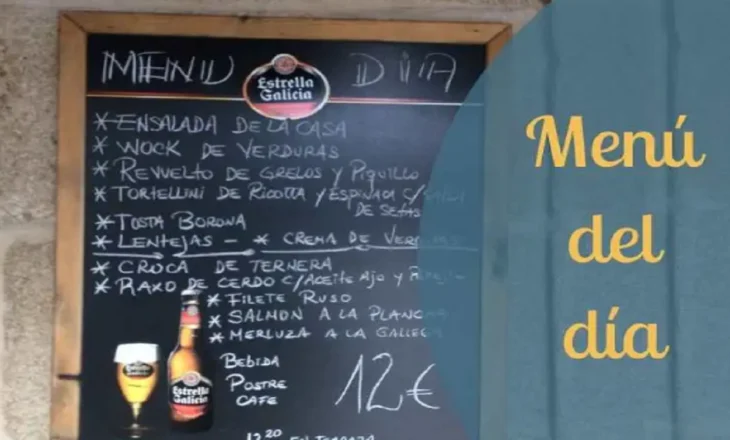 MENU DIA
Estrella
Galicia
* ENSALADA DE LA CASA
* WOCK DE VERDURAS
* REVUELTO DE GRELOS Y PIQUILLO
* TORTELLINI DE RICOTTA Y ESPINACA C/
DE SETAS
* TOSTA BORONA
* LENTEJAS - * CREMA DE
* CROCA DE TERNERA
* RAXO DE CERDO C/ACEITE AJO Y
* FILETE RUSO
* SALMON A LA PLANCHA
* MERLUZA A LA GALLEGA
BEBIDA
POSTRE
CAFE
12€
Estrella
Galicia
12,20 EN TERRAZA
Menú
del
día